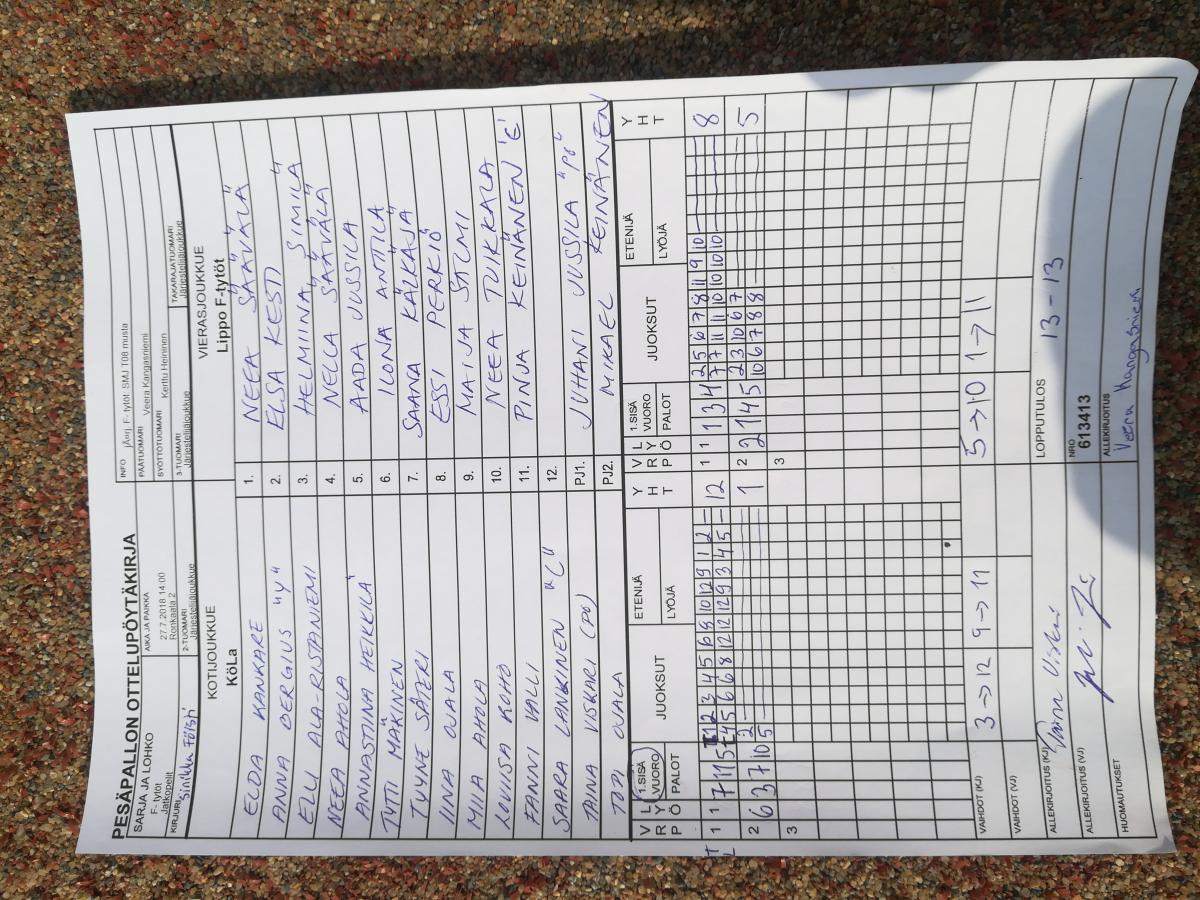 PESÄPALLON OTTELUPÖYTÄKIRJA
SARJA JA LOHKO
F- tytöt
Jatkopelit
AIKA JA PAIKKA
27.7.2018 14:00
Ronkaala 2
INFO
F- tytöt: SMJ T08 musta
PÄÄTUOMARI
Veera Kangasniemi
SYÖTTÖTUOMARI
Kerttu Heininen
KIRJURI
Sinikka
2-TUOMARI
Järjestelijäjoukkue
3-TUOMARI
Järjestelijäjoukkue
TAKARAJATUOMARI
Järjestelijäjoukkue
KOTIJOUKKUE
KöLa
VIERASJOUKKUE
Lippo F-tytöt
ELDA KANKARE 1. NEEA SÄÄVÄLÄ
ANNA BERGIUS "Y" 2. ELSA KESTI
ELLI ALA-RISTANIEMI 3. HELMIINA SIIMILÄ
NEEA AHOLA 4. NELLA SÄÄVÄLÄ
ANNASTIINA HEIKKILÄ 5. AADA JUSSILA
TYTTI MÄKINEN 6. ILONA ANTTILA
TUUNE SÄTERI 7. SAANA KÄLKÄJÄ
IINA OJALA 8. ESSI PERKIÖ
MILA AHOLA 9. MAIJA SALMI
LOVIISA KOHO 10. NEEA TUIKKALA
FANNI VALLI 11. PINJA KEINÄNEN "E"
SAARA LANKINEN "C" 12.
TAINA VISKARI (PÖ) PJ1. JUHANI JUSSILA "PÖ"
TOPI OJALA PJ2. MIKAEL KEINÄNEN
V R P L Y Ö 1.SISÄ VUORO PALOT JUOKSUT ETENIJÄ LYÖJÄ Y H T V R P L Y Ö 1.SISÄ VUORO PALOT JUOKSUT ETENIJÄ LYÖJÄ Y H T
T
L
1 1 7 11 5 1 2 3 4 5 6 9 10 12 9 1 2 – 12
4 5 6 6 8 12 12 12 9 3 4 5 –
1 1 1 3 4 2 5 6 7 8 11 9 10 8
7 7 11 11 10 10 10 10
2 6 3 7 10 2 1
5
2 2 1 4 5 2 3 10 6 7 5
10 6 7 8 8
3
3
VAIHDOT (KJ) 3→12 9→11 5→10 1→11
VAIHDOT (VJ)
ALLEKIRJOITUS (KJ)
LOPPUTULOS 13-13
ALLEKIRJOITUS (VJ)
NRO
613413
HUOMAUTUKSET
ALLEKIRJOITUS
Veera Kangasniemi